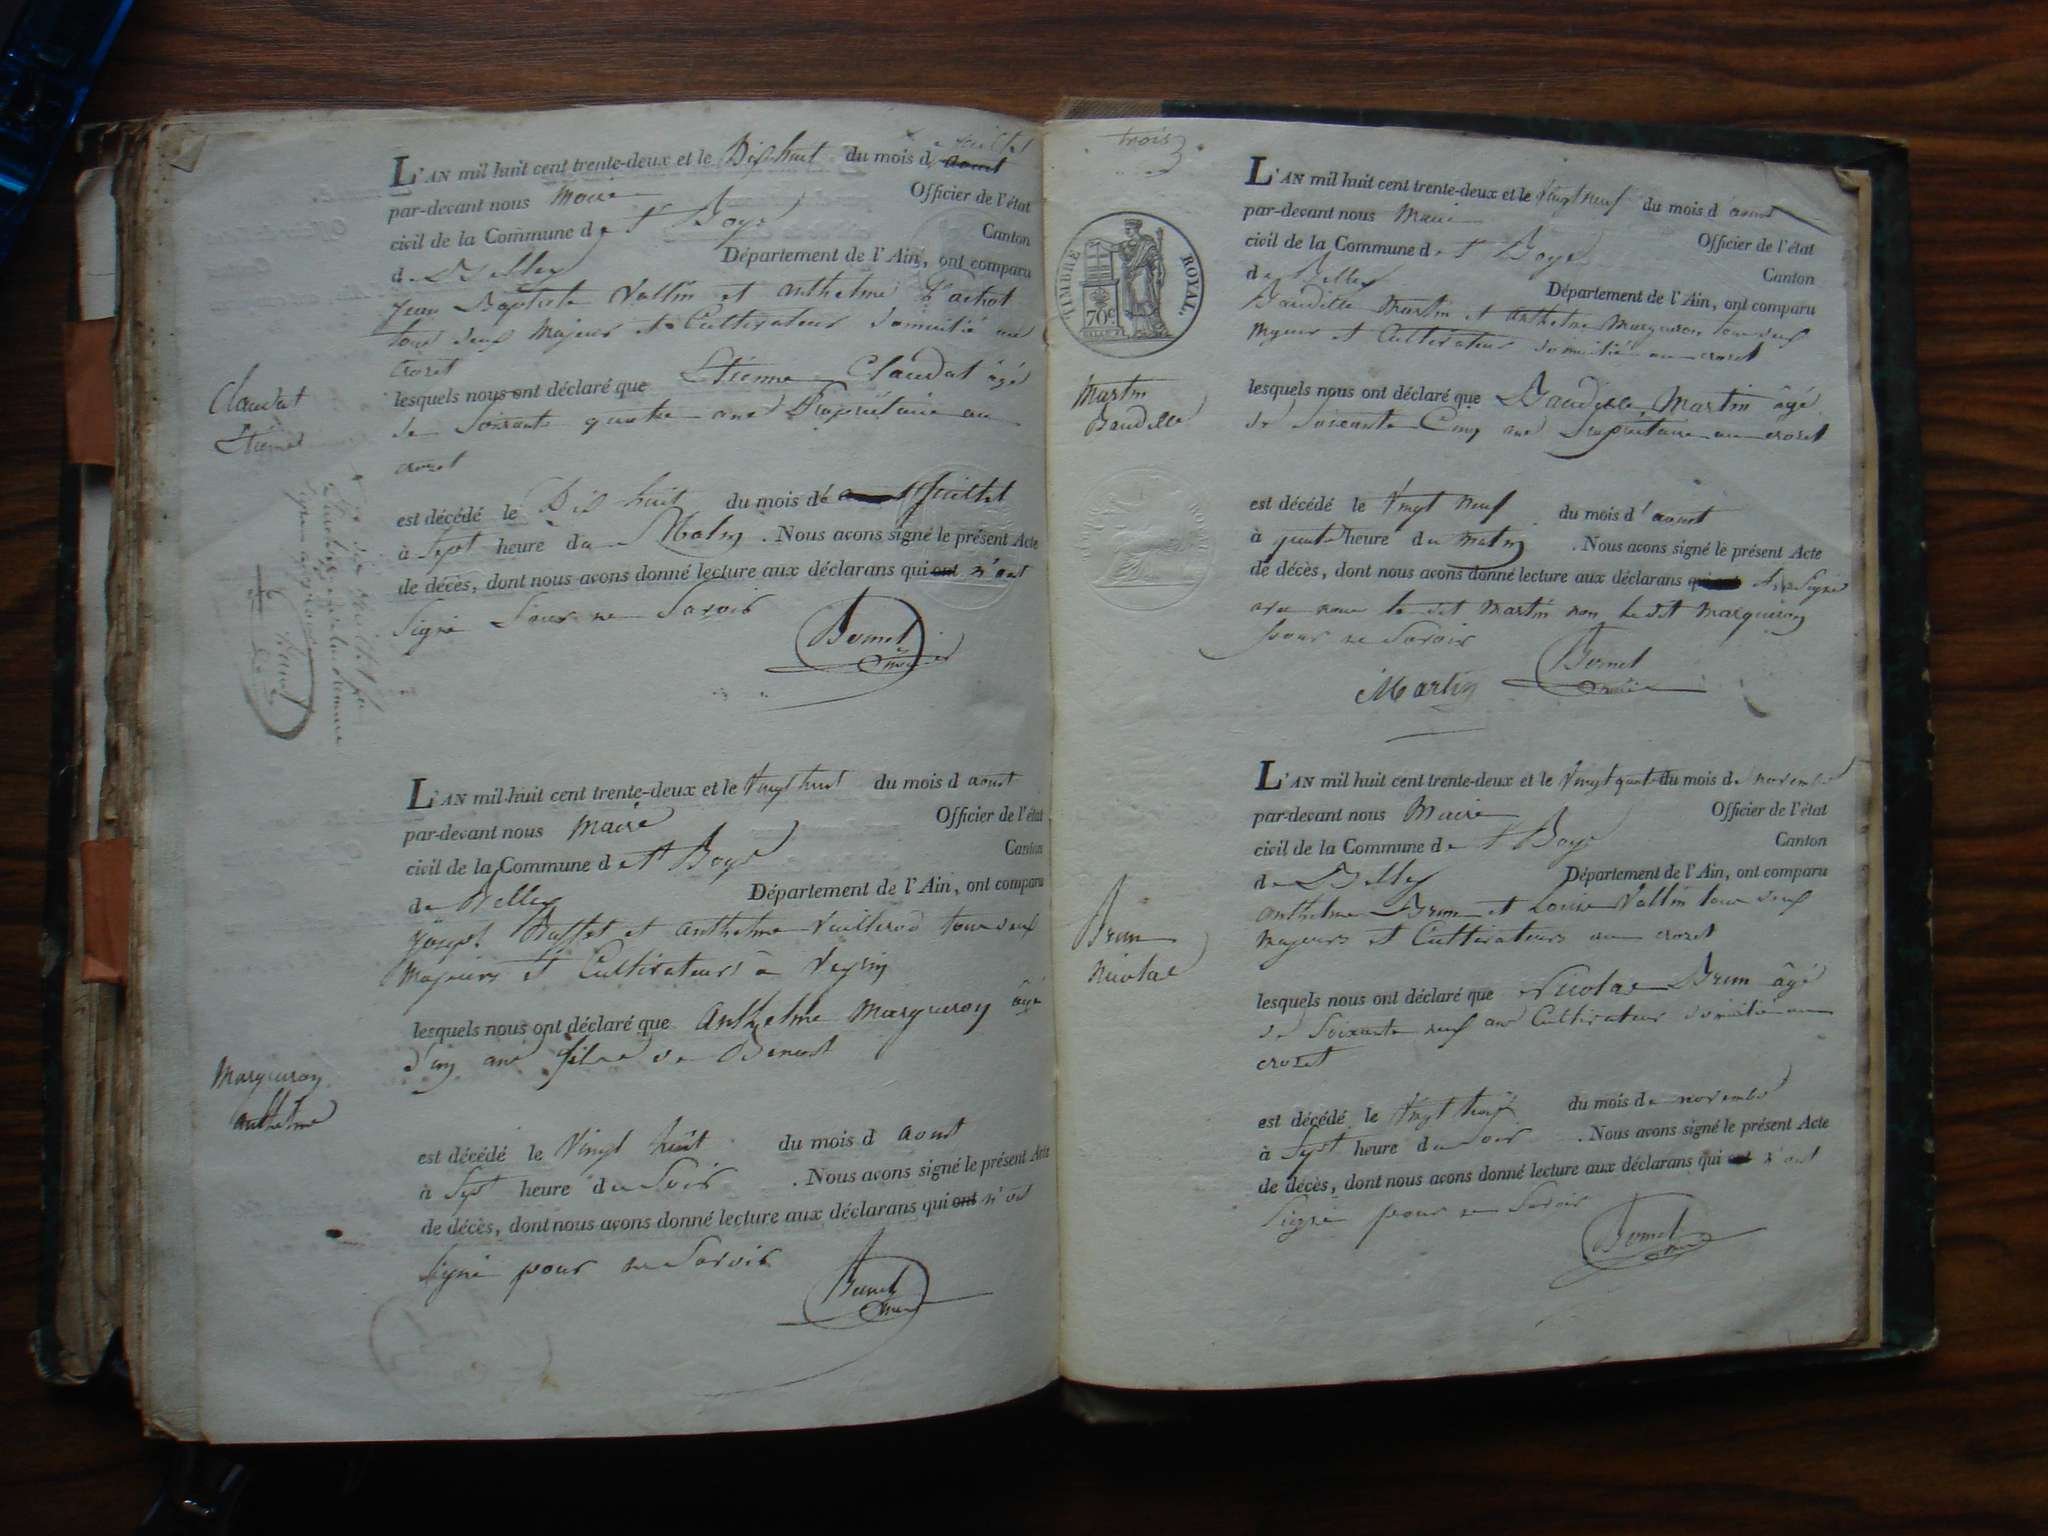 L'AN mil huit cent trente-deux et le Dix huit du mois de juillet
par-devant nous Maire Officier de l'état
civil de la Commune de St Boys Canton
de Belley Département de l'Ain, ont comparu
Jean Baptiste Vallin et anthelme
tous deux Majeur et Cultivateur domicilié au
crozet
Claudat
Etienne
lesquels nous ont déclaré que Etienne Claudat âgé
de Soixante quatre ans Propriétaire au
crozet
est décédé le Dix huit du mois de Juillet
à Sept heure du Matin . Nous avons signé le présent Acte
de décès, dont nous avons donné lecture aux déclarans qui ont n'ont
Signé Pour ne Savoir
L'AN mil huit cent trente-deux et le Vingt huit du mois d aout
par-devant nous Maire Officier de l'état
civil de la Commune de St Boys Canton
de Belley Département de l'Ain, ont comparu
Joseph et anthelme tous deux
Majeurs et Cultivateurs à
lesquels nous ont déclaré que Anthelme Marqueron âgé
d'un ans fils de Benoit
Marqueron
anthelme
est décédé le Vingt huit du mois d aout
à Sept heure du Soir . Nous avons signé le présent Acte
de décès, dont nous avons donné lecture aux déclarans qui ont n'ont
Signé pour ne Savoir
trois
TIMBRE ROYAL.
70c
L'AN mil huit cent trente-deux et le Vingt neuf du mois d'aout
par-devant nous Maire Officier de l'état
civil de la Commune de St Boys Canton
de Belley Département de l'Ain, ont comparu
Baudille Martin et anthelme Marqueron tous deux
Majeur et Cultivateur domicilié au crozet
Martin
Baudille
lesquels nous ont déclaré que Baudille Martin âgé
de Soixante Cinq ans Propriétaire au crozet
est décédé le Vingt neuf du mois d'aout
à quatre heure du matin . Nous avons signé le présent Acte
de décès, dont nous avons donné lecture aux déclarans qui ont Signé
avec nous le dit Martin non le dit Marqueron
pour ne Savoir
Martin
L'AN mil huit cent trente-deux et le Vingt quatre du mois de novembre
par-devant nous Maire Officier de l'état
civil de la Commune de St Boys Canton
de Belley Département de l'Ain, ont comparu
Anthelme Brun et Louis Vallin tous deux
Majeurs et Cultivateurs au crozet
Brun
Nicolas
lesquels nous ont déclaré que Nicolas Brun âgé
de Soixante neuf ans Cultivateur domicilié au
crozet
est décédé le Vingt trois du mois de novembre
à Sept heure du Soir . Nous avons signé le présent Acte
de décès, dont nous avons donné lecture aux déclarans qui ont n'ont
Signé pour ne Savoir